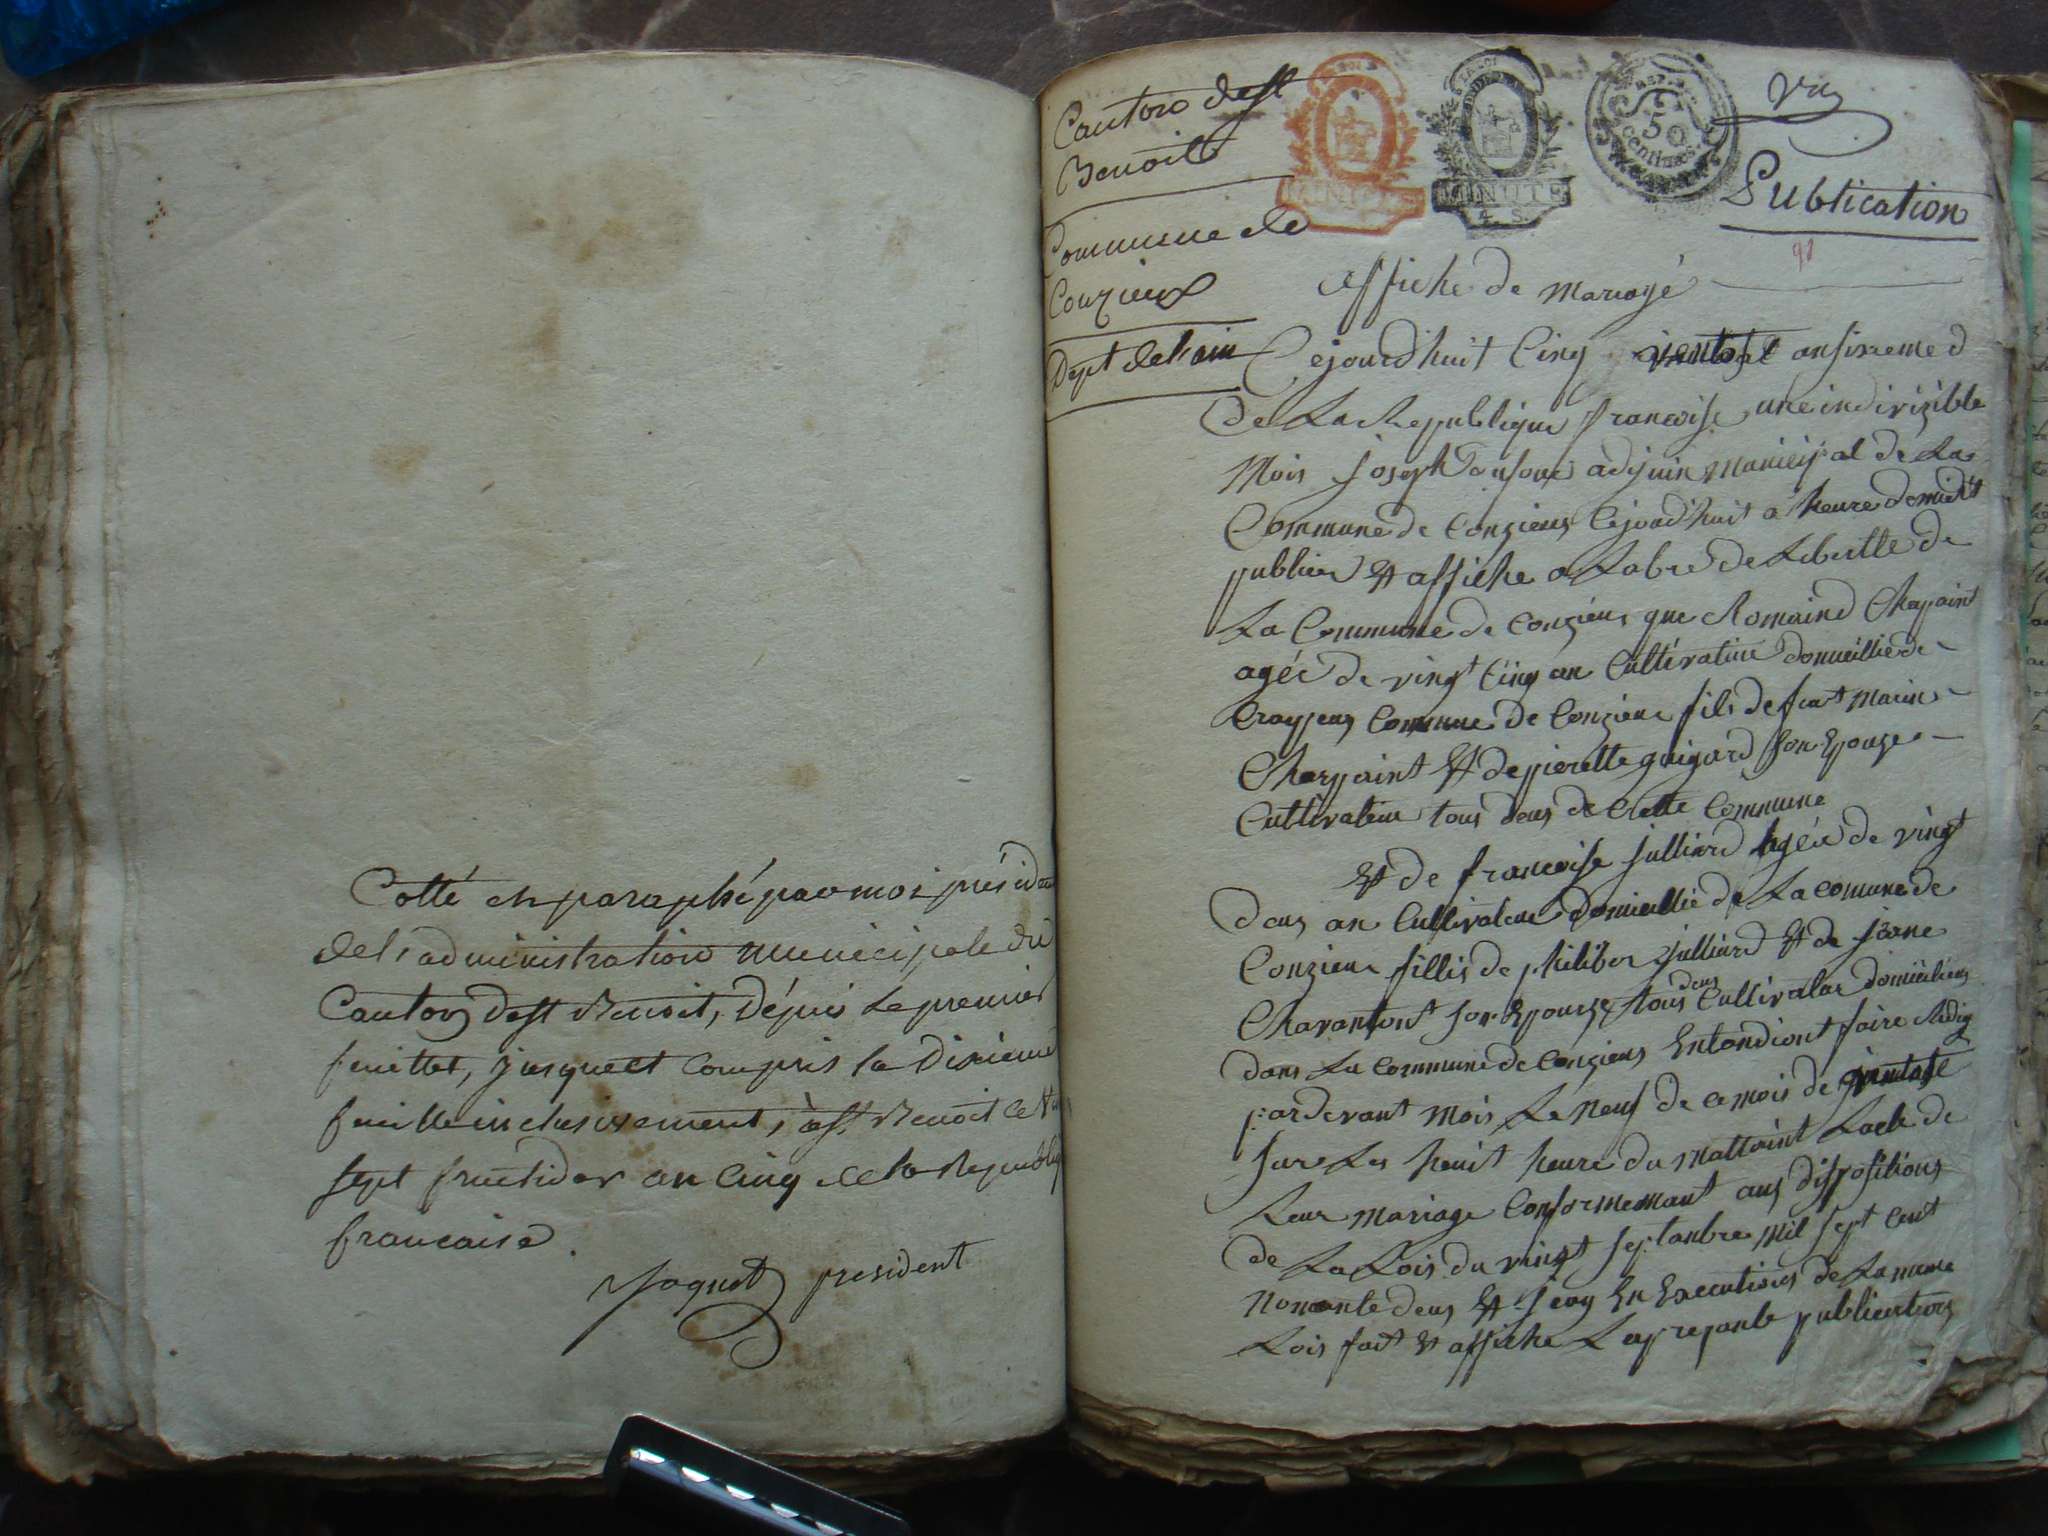 Cotté et paraphé par moi présidt
de l'administration municipale du
Canton de st Benoit, Dépuis le premier
feuillet, jusque et compris le Dixieme
feuille inclusivement, à st Benoit le vingt
sept fructidor an cinq de la Republiq
francaise.
Jaquet president
Canton de st
Benoit
Commune de
Conzieux
Dept de l'ain
MINUTE
MINUTE
4. S.
REP. F.
50
Centimes
Publication
91
affiche de mariagé
Cejourd'huit Cinq ventose an sixieme d
de La Republique francoise une indivizible
Mois Joseph adjoin municipal de La
Commune de Conzieux Cejourd'huit a heure de midit
publier et affiche a Labre de Libertte de
La Commune de Conzieux que Romaind Charpaint
agéé de vingt Cinq an Cultivateur domicillié de
Crayjeux Commune de Conzieux fils de feut Marin
Charpaint et de pierette guigard Son Epouze
Cultivateur tous deux de Cette Commune
Et de francoise Julliard agéé de vingt
deux an Cultivateur domicillié de La comune de
Conzieux fillis de philiber Julliard et de Jeane
Chavantont Son Epouze tous deux Cultivateur domicilieux
dans La commune de Conzieux Entandiont faire Redig
pardevant Mois Le Neuf de ce mois de ventose
sure Les huit heure du Mattaint Lacte de
Leur Mariage Conformemant aux dispositions
de La Lois du vingt septanbre Mil sept cent
Nonante deux et Jeay En Executions de La meme
Lois fait et affiche La presante publications